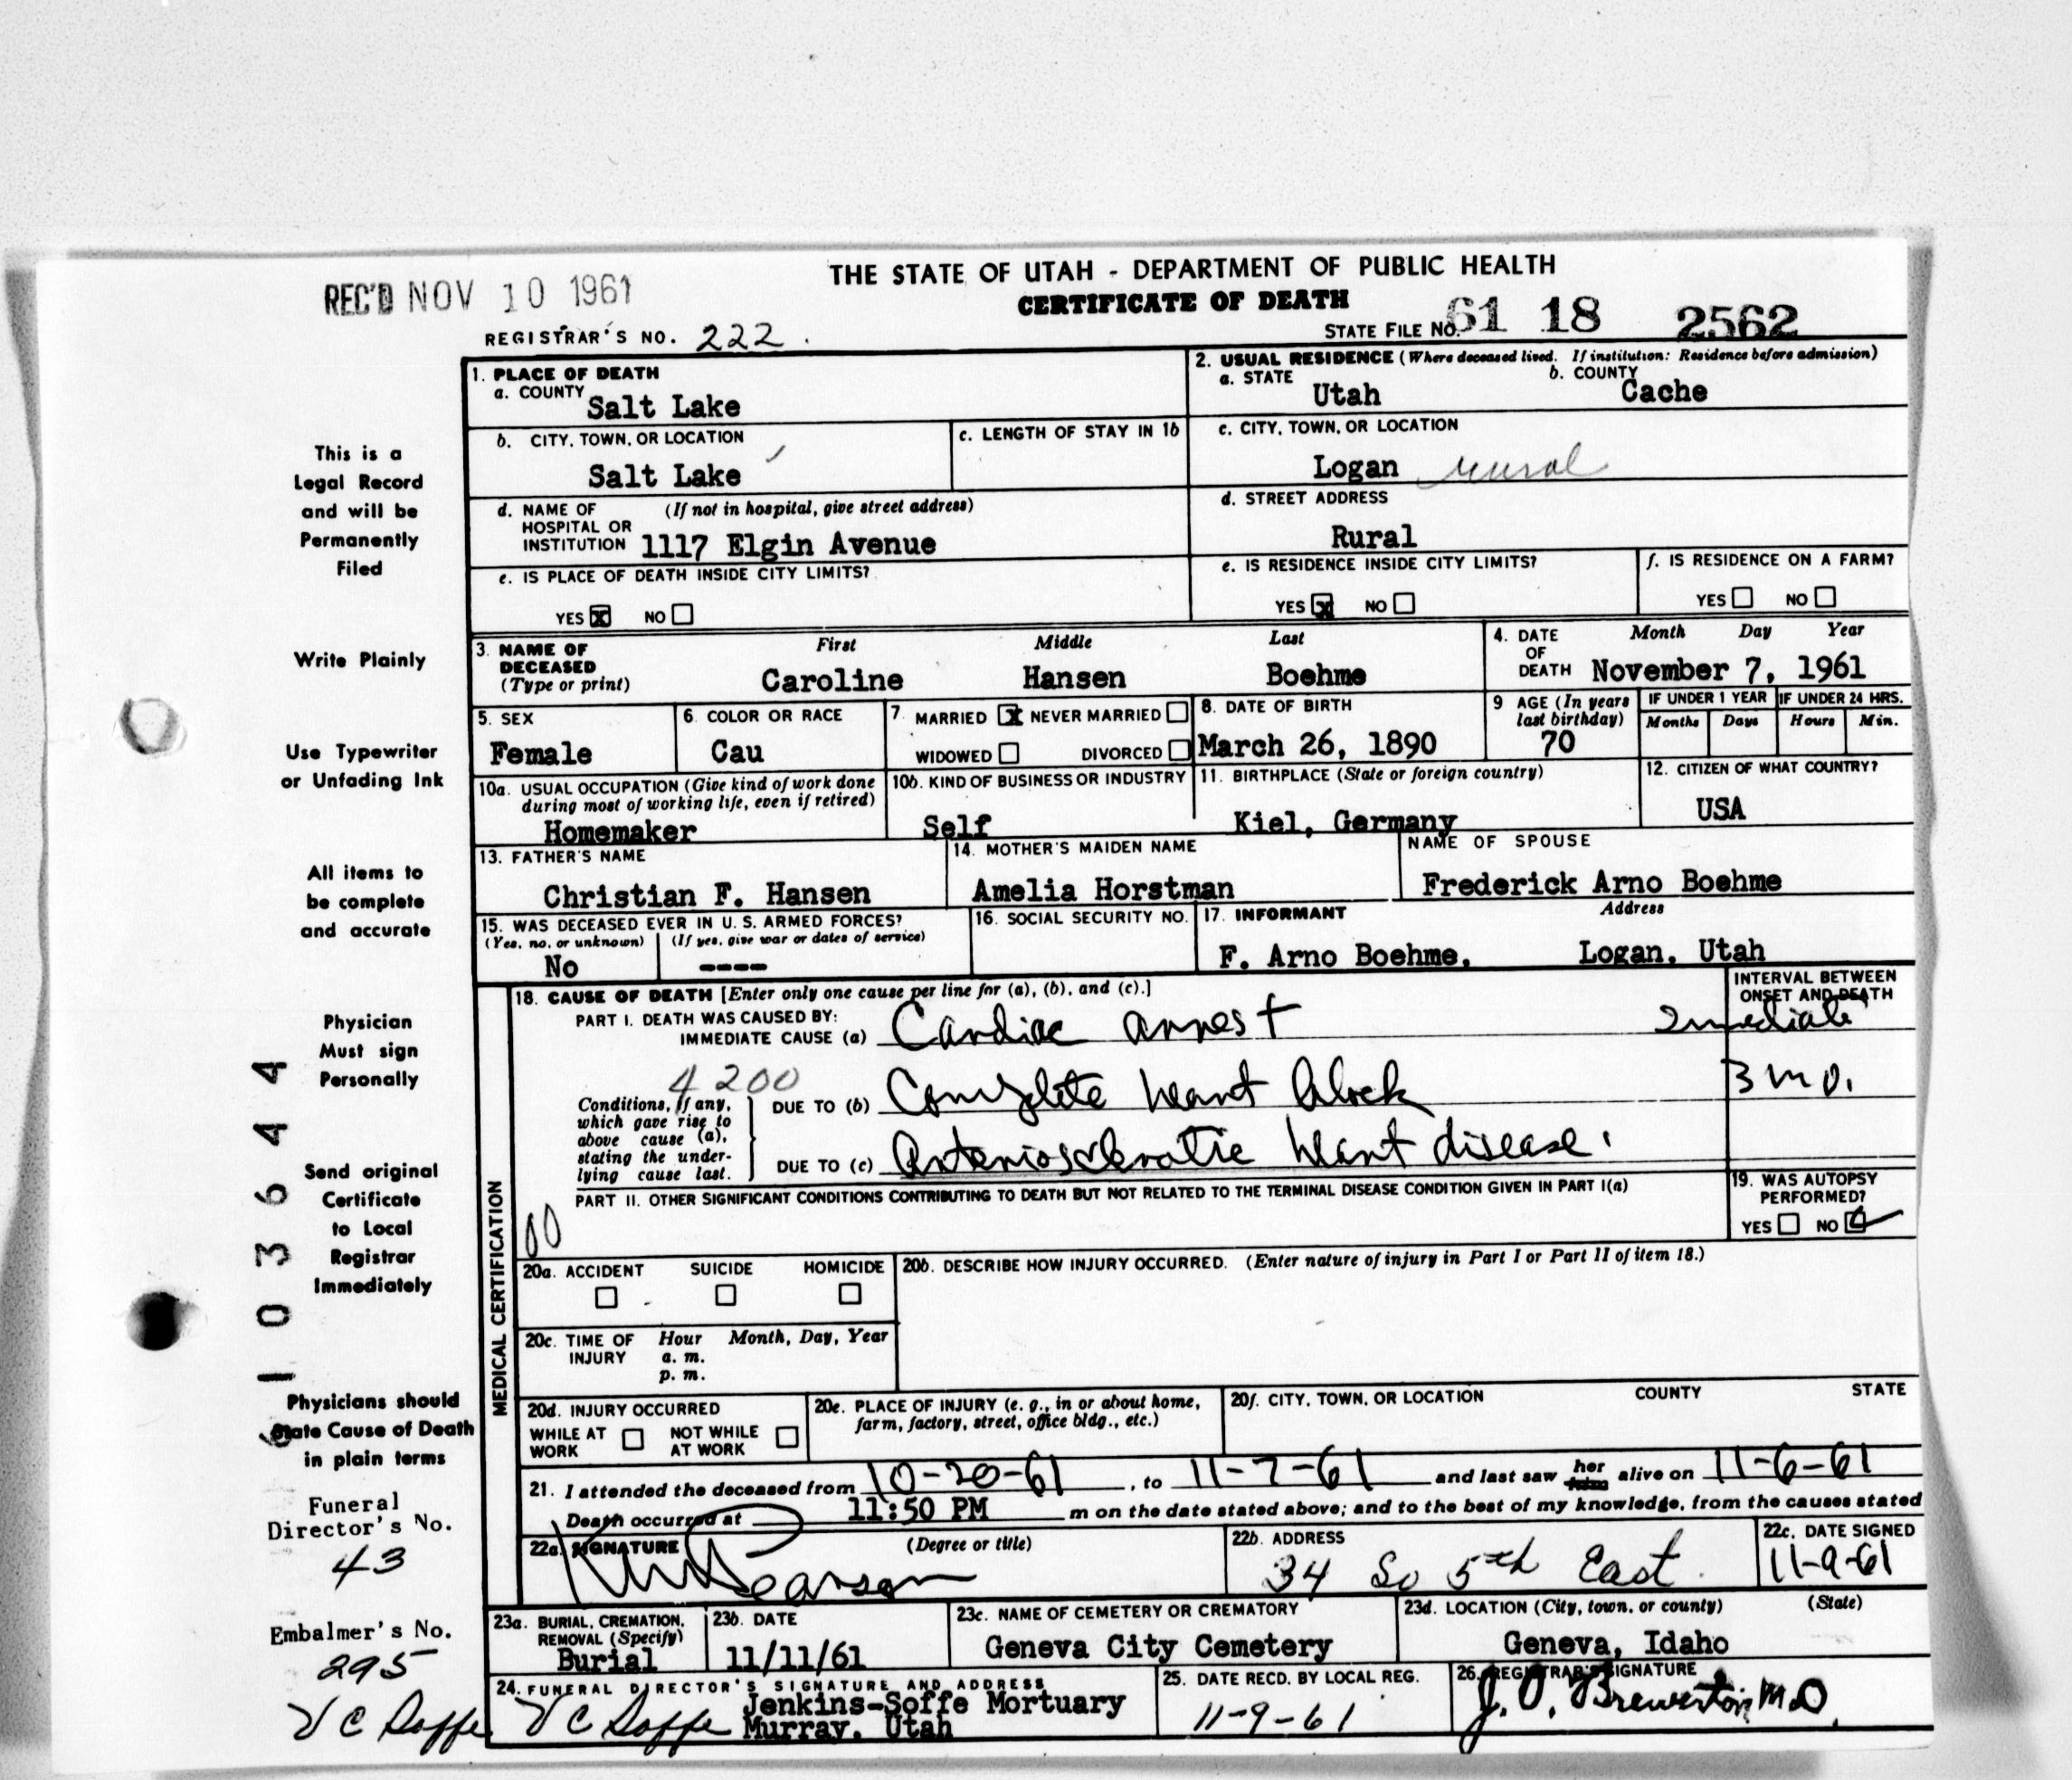 REC'D NOV 10 1961
THE STATE OF UTAH - DEPARTMENT OF PUBLIC HEALTH
CERTIFICATE OF DEATH
REGISTRAR'S NO. 222
STATE FILE NO. 61 18 2562
1. PLACE OF DEATH
a. COUNTY
Salt Lake
2. USUAL RESIDENCE (Where deceased lived. If institution: Residence before admission)
a. STATE
Utah
b. COUNTY
Cache
b. CITY, TOWN, OR LOCATION
Salt Lake
c. LENGTH OF STAY IN 1b
c. CITY, TOWN, OR LOCATION
Logan rural
d. NAME OF HOSPITAL OR INSTITUTION (If not in hospital, give street address)
1117 Elgin Avenue
d. STREET ADDRESS
Rural
e. IS PLACE OF DEATH INSIDE CITY LIMITS?
YES X NO
e. IS RESIDENCE INSIDE CITY LIMITS?
YES X NO
f. IS RESIDENCE ON A FARM?
YES NO
3. NAME OF DECEASED (Type or print)
First Middle Last
Caroline Hansen Boehme
4. DATE OF DEATH
Month Day Year
November 7, 1961
5. SEX
Female
6. COLOR OR RACE
Cau
7. MARRIED X NEVER MARRIED
WIDOWED DIVORCED
8. DATE OF BIRTH
March 26, 1890
9 AGE (In years last birthday)
70
IF UNDER 1 YEAR
Months Days
IF UNDER 24 HRS.
Hours Min.
10a. USUAL OCCUPATION (Give kind of work done during most of working life, even if retired)
Homemaker
10b. KIND OF BUSINESS OR INDUSTRY
Self
11. BIRTHPLACE (State or foreign country)
Kiel, Germany
12. CITIZEN OF WHAT COUNTRY?
USA
13. FATHER'S NAME
Christian F. Hansen
14. MOTHER'S MAIDEN NAME
Amelia Horstman
NAME OF SPOUSE
Frederick Arno Boehme
15. WAS DECEASED EVER IN U. S. ARMED FORCES?
(Yes, no, or unknown) (If yes, give war or dates of service)
No ----
16. SOCIAL SECURITY NO.
17. INFORMANT Address
F. Arno Boehme, Logan, Utah
MEDICAL CERTIFICATION
18. CAUSE OF DEATH [Enter only one cause per line for (a), (b), and (c).]
INTERVAL BETWEEN ONSET AND DEATH
PART I. DEATH WAS CAUSED BY:
IMMEDIATE CAUSE (a) Cardiac arrest Immediate
4200
Conditions, if any, which gave rise to above cause (a), stating the underlying cause last.
DUE TO (b) Complete heart block 3 mo.
DUE TO (c) Arteriosclerotic heart disease.
PART II. OTHER SIGNIFICANT CONDITIONS CONTRIBUTING TO DEATH BUT NOT RELATED TO THE TERMINAL DISEASE CONDITION GIVEN IN PART I(a)
00
19. WAS AUTOPSY PERFORMED?
YES NO
20a. ACCIDENT SUICIDE HOMICIDE
20b. DESCRIBE HOW INJURY OCCURRED. (Enter nature of injury in Part I or Part II of item 18.)
20c. TIME OF INJURY Hour Month, Day, Year
a. m.
p. m.
20d. INJURY OCCURRED
WHILE AT WORK NOT WHILE AT WORK
20e. PLACE OF INJURY (e. g., in or about home, farm, factory, street, office bldg., etc.)
20f. CITY, TOWN, OR LOCATION COUNTY STATE
21. I attended the deceased from 10-20-61, to 11-7-61 and last saw her him alive on 11-6-61
Death occurred at 11:50 PM m on the date stated above; and to the best of my knowledge, from the causes stated
22a. SIGNATURE (Degree or title)
Pearson
22b. ADDRESS
34 So 5th East
22c. DATE SIGNED
11-9-61
23a. BURIAL, CREMATION, REMOVAL (Specify)
Burial
23b. DATE
11/11/61
23c. NAME OF CEMETERY OR CREMATORY
Geneva City Cemetery
23d. LOCATION (City, town, or county) (State)
Geneva, Idaho
24. FUNERAL DIRECTOR'S SIGNATURE AND ADDRESS
V C Soffe Jenkins-Soffe Mortuary
Murray, Utah
25. DATE RECD. BY LOCAL REG.
11-9-61
26. REGISTRAR'S SIGNATURE
J. O. Brewerton M.D.
This is a
Legal Record
and will be
Permanently
Filed
Write Plainly
Use Typewriter
or Unfading Ink
All items to
be complete
and accurate
Physician
Must sign
Personally
Send original
Certificate
to Local
Registrar
Immediately
Physicians should
State Cause of Death
in plain terms
Funeral
Director's No.
43
Embalmer's No.
295
V C Soffe
6103644